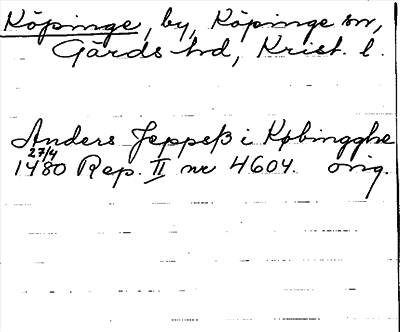 Köpinge, by, Köpinge sn,
Gärds hd, Krist. l.
Anders Jeppeß i Købingghe
27/4
1480 Rep. II nr 4604. orig.